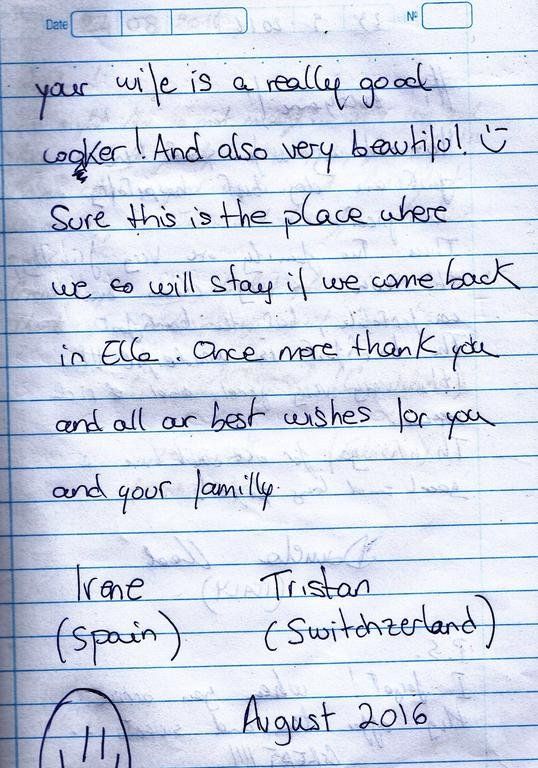 Date Nº
your wife is a really good
cooker! And also very beautiful! :)
Sure this is the place where
we will stay if we come back
in Ella. Once more thank you
and all our best wishes for you
and your familly.
Irene Tristan
(Spain) (Switchzerland)
August 2016